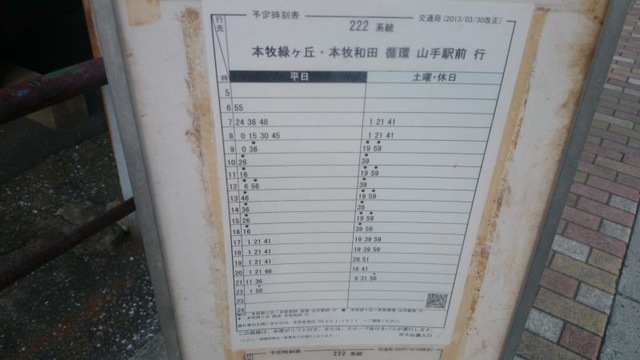 行先
予定時刻表
222 系統
交通局 (2013/03/30改正)
本牧緑ヶ丘・本牧和田 循環 山手駅前 行
時 平日 土曜・休日
5
6 55
7 24 36 48 1 21 41
8 0 15 30 45 1 21 41
9 0 36 19 59
10 26 39
11 16 19 59
12 6 56 39
13 46 19 59
14 36 39
15 26 19 59
16 16 39 59
17 1 21 41 19 39 59
18 1 21 41 19 39 59
19 1 21 41 26 51
20 1 21 46 16 41
21 11 36 6 31 56
22 1 50
23
24
予定時刻表 222 系統